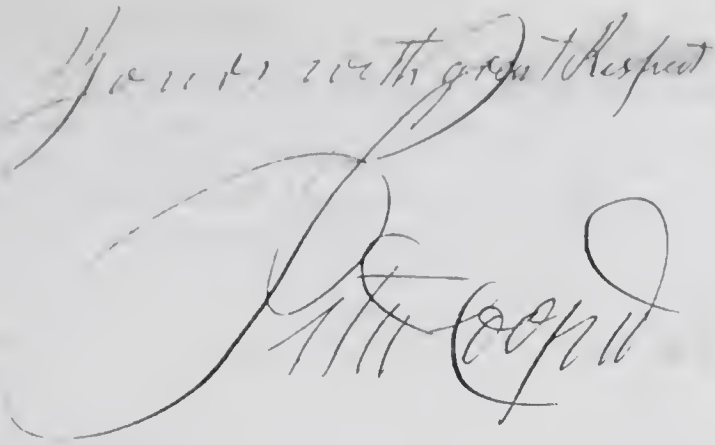 Yours with great Respect
Peter Cooper